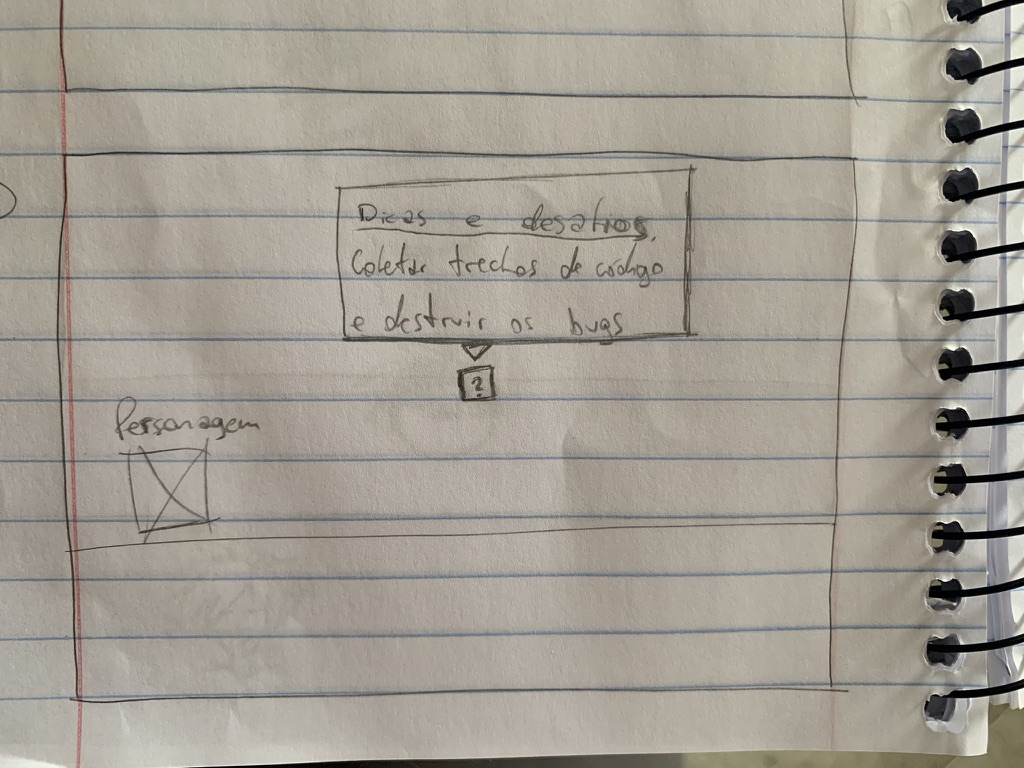 Dicas e desafios,
Coletar trechos de código
e destruir os bugs
?
Personagem